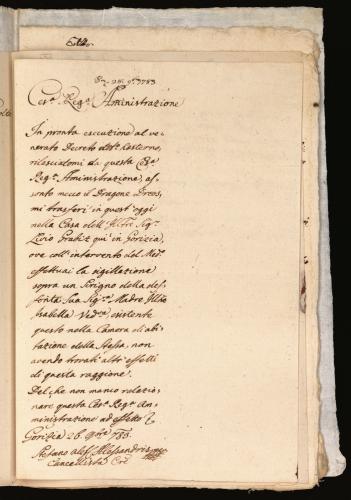 26. 9bre 1783
Ces.ª Reg.ª Aministrazione
In pronta esecuzione al ve-
nerato Decreto dell' hesterno,
rilasciatomi da questa Ces.ª
Reg.ª Aministrazione, as-
sonto meco il Dragone
mi trasferi in quest' oggi
nella Casa dell' Ill.re Sig.r
Livio qui in Gorizia,
ove coll' intervento del Med.mo
effettuai la sigillazione
sopra un Scrigno della def-
fonta Sua Sig.ra Madre
Isabella Ved.va, esistente
questo nella Camera di abi-
tazione della Stessa, non
avendo trovati altri effetti
di questa raggione.
Del che non manco relazio-
nare questa Ces.ª Reg.ª Am-
ministrazione ad effetto
Gorizia 26. 9bre 783.
Stefano Alessandris
Cancellista